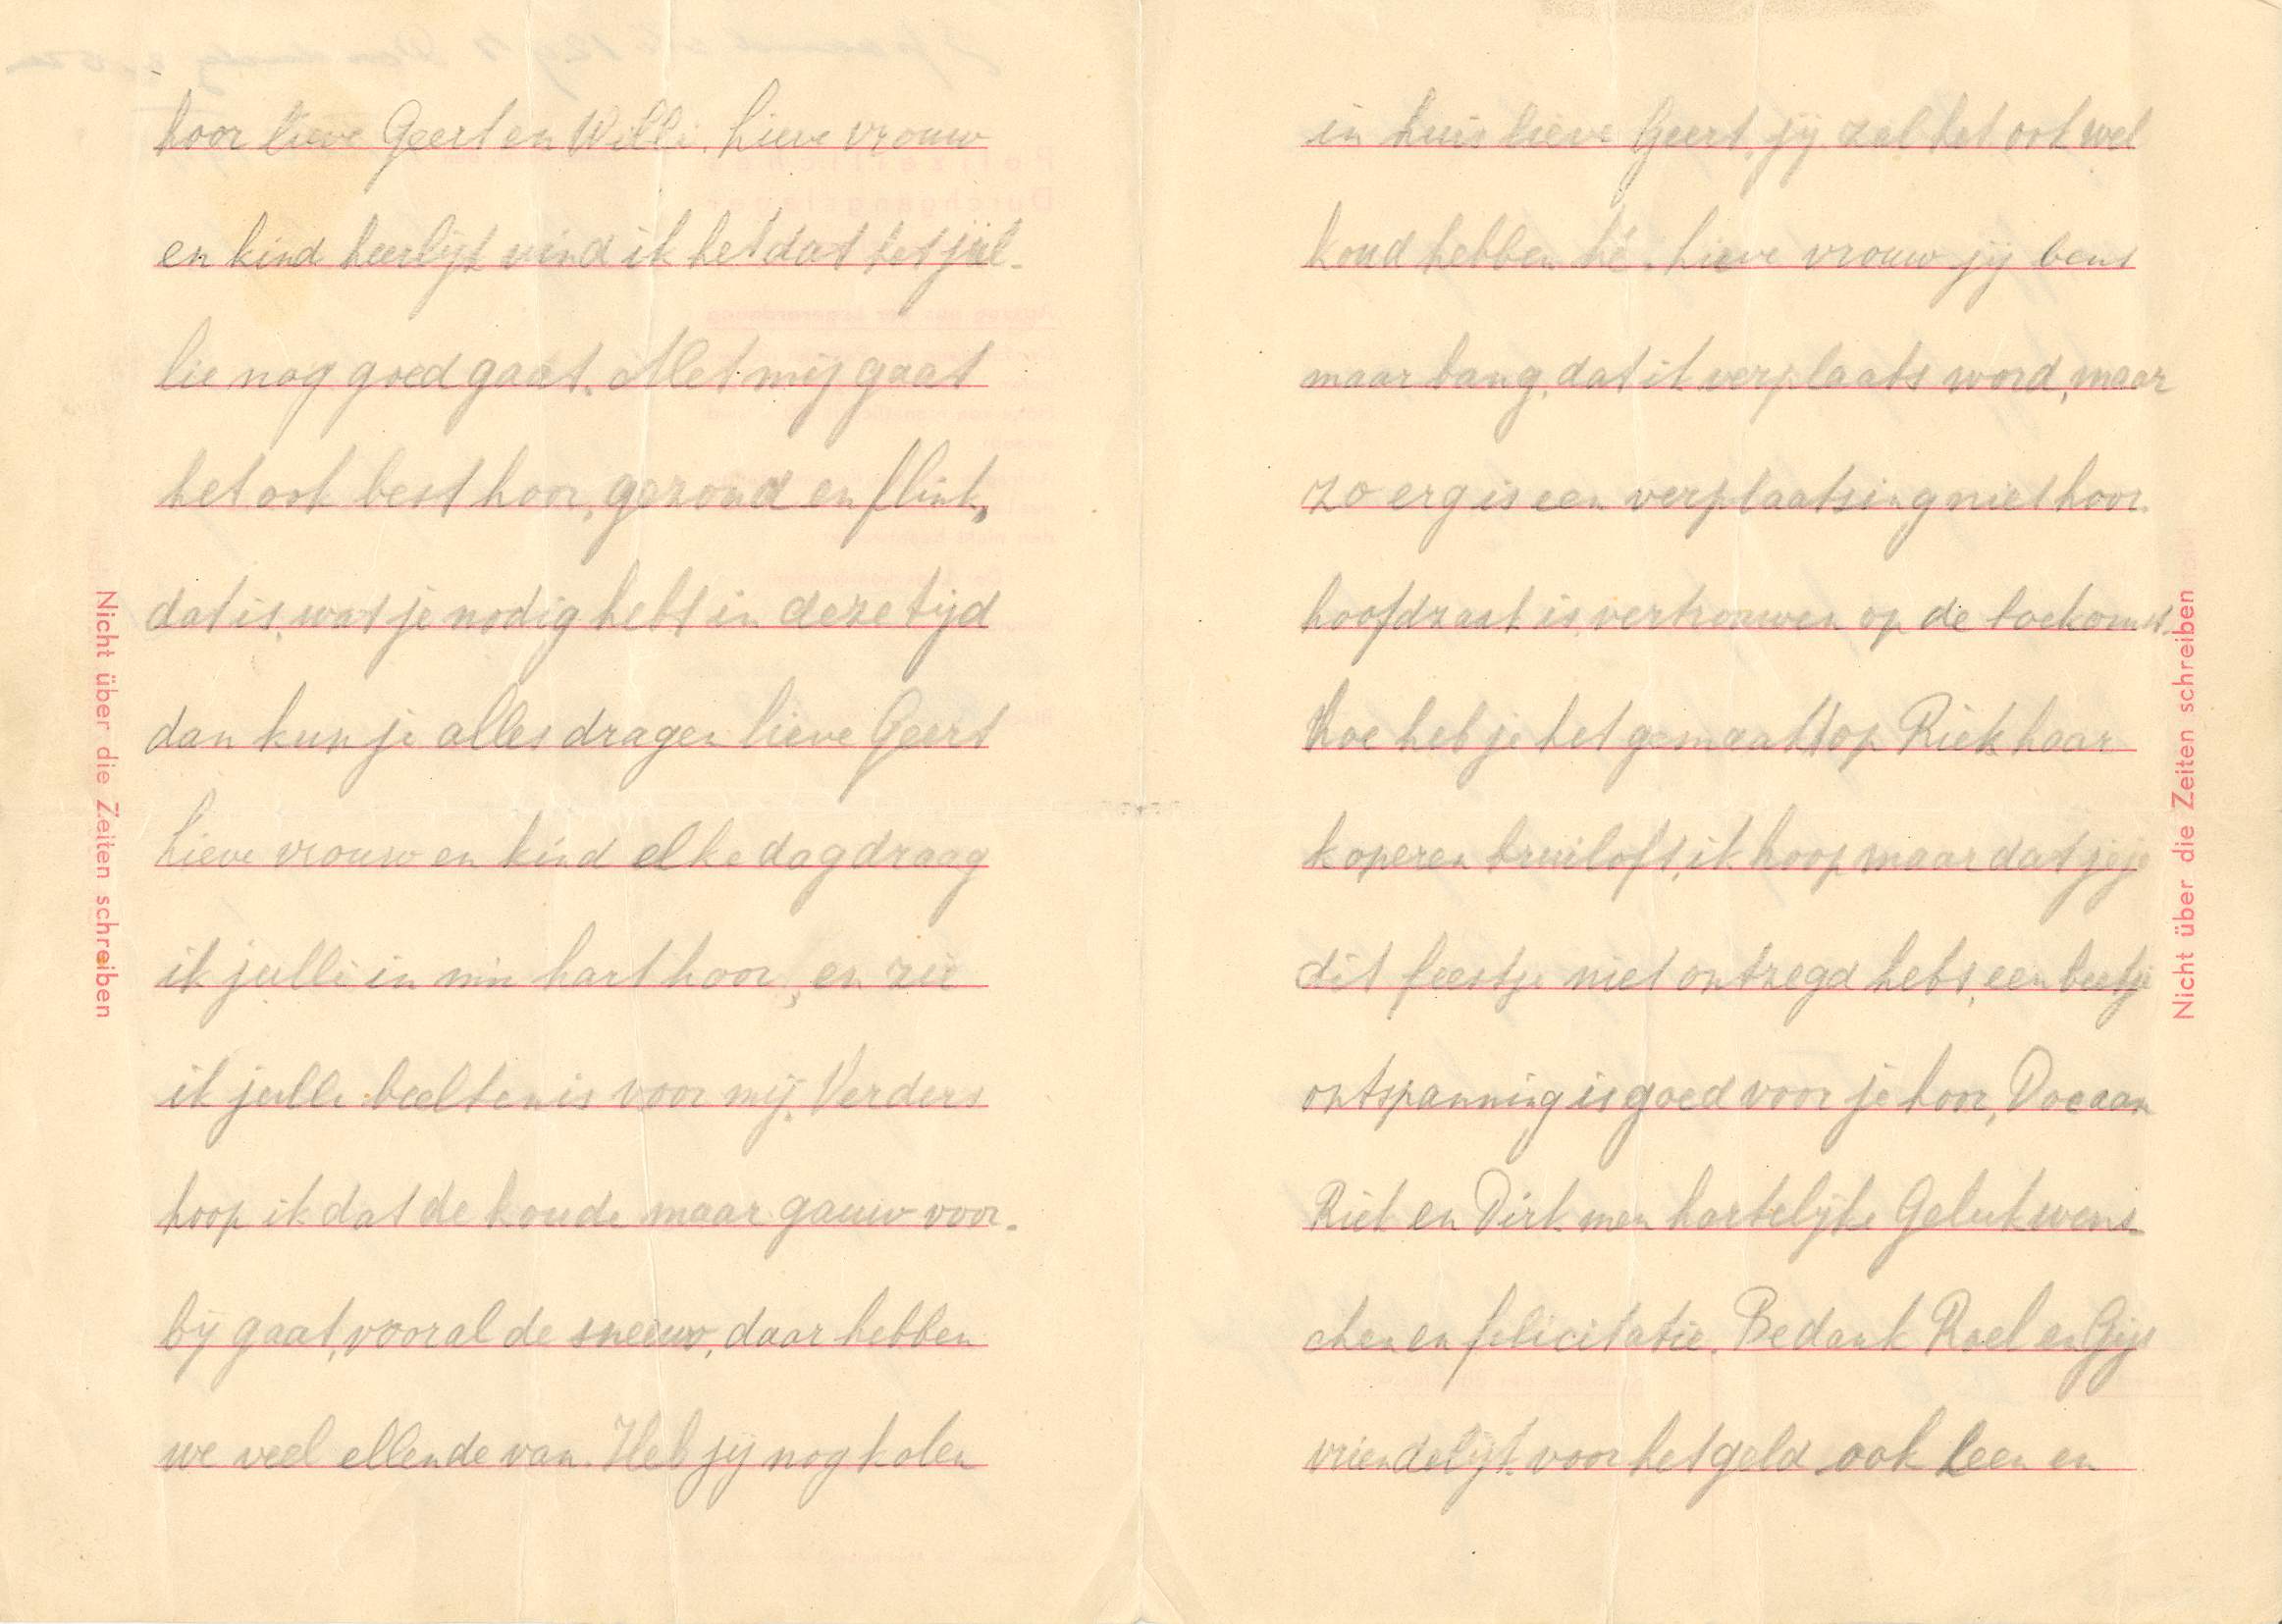 hoor lieve Geert en Willi. Lieve vrouw
en kind heerlijk vind ik het dat het jul-
lie nog goed gaat. Met mij gaat
het ook best hoor, gezond en flink,
dat is wat je nodig hebt in deze tijd
dan kun je alles dragen lieve Geert
Lieve vrouw en kind elke dag draag
ik julli in min hart hoor, en zie
ik julle beeltenis voor mij. Verders
hoop ik dat de koude maar gauw voor-
bij gaat, vooral de sneeuw, daar hebben
we veel ellende van. Heb jij nog kolen
Nicht über die Zeiten schreiben
in huis lieve Geert, jij zal het ook wel
koud hebben hé. Lieve vrouw jij bent
maar bang, dat ik verplaats word, maar
zo erg is een verplaatsing niet hoor.
hoofdzaak is vertrouwen op de toekomst.
Hoe heb je het gemaakt op Riek haar
koperen bruiloft, ik hoop maar dat je je
dit feestje niet ontzegd hebt, een beetje
ontspanning is goed voor je hoor, Doe aan
Riek en Dirk men hartelijke Gelukwens
chen en felicitatie. Bedank Roel en Gijs
vriendelijk voor het geld ook Leen en
Nicht über die Zeiten schreiben